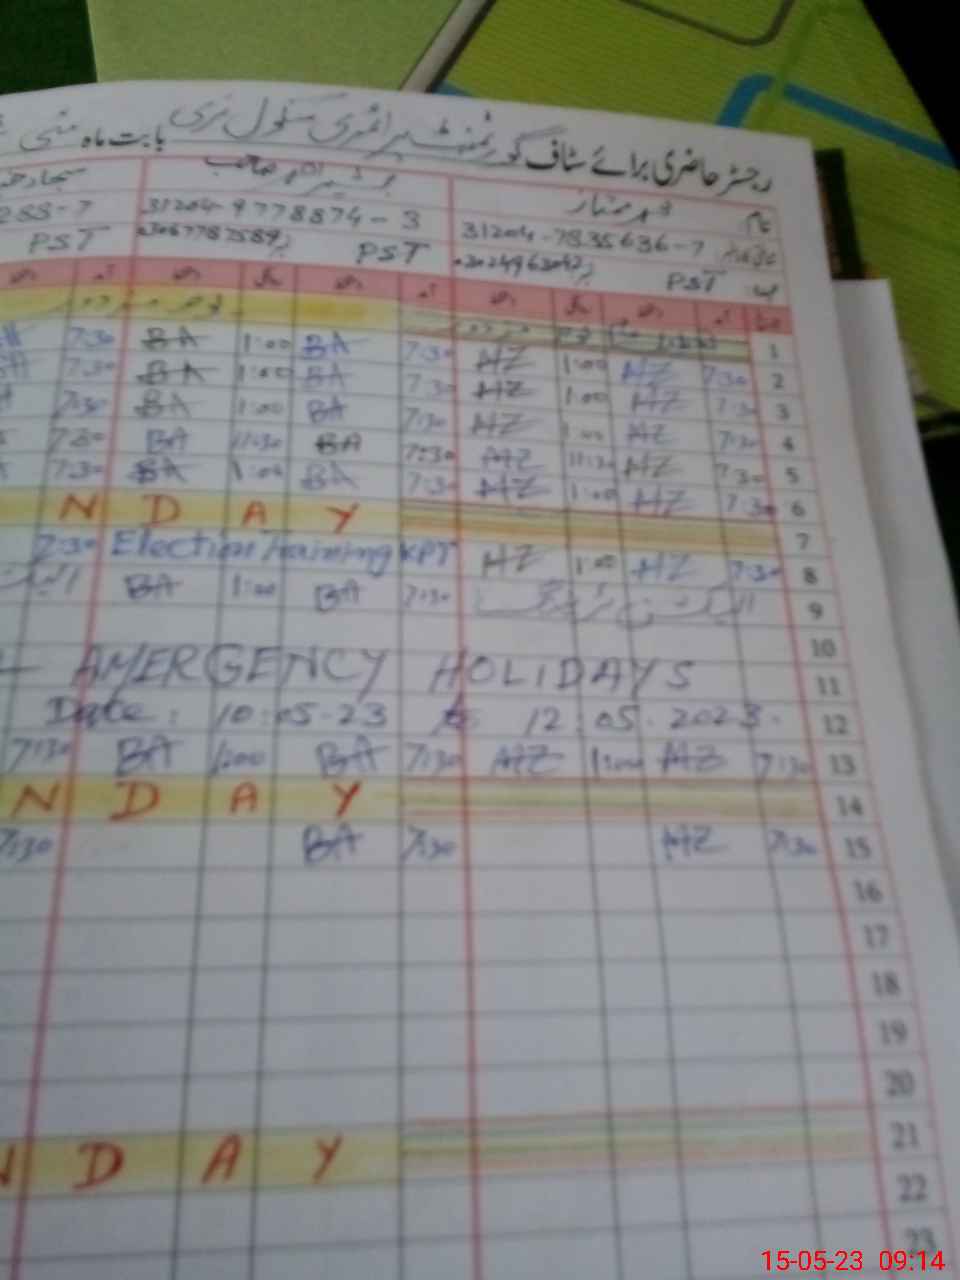 رجسٹر حاضری برائے سٹاف گورنمنٹ پرائمری سکول نری بابت ماہ مئی
نام محمد ممتاز بشیر احمد صاحب سجاد
31204-7835636-7 31204-9778874-3 288-7
PST 03024963042 PST 03067787589 PST
1
7:30 BA 1:00 BA 7:30 HZ 1:00 HZ 7:30 2
7:30 BA 1:00 BA 7:30 HZ 1:00 HZ 7:30 3
7:30 BA 1:00 BA 7:30 HZ 1:00 HZ 7:30 4
7:30 BA 11:30 BA 7:30 HZ 11:30 HZ 7:30 5
7:30 BA 1:00 BA 7:30 HZ 1:00 HZ 7:30 6
N D A Y 7
7:30 Election Training KPT HZ 1:00 HZ 7:30 8
BA 1:00 BA 7:30 الیکشن ٹریننگ 9
10
AMERGENCY HOLIDAYS 11
Date: 10:05-23 12:05.2023. 12
7:30 BA 1:00 BA 7:30 HZ 1:00 HZ 7:30 13
N D A Y 14
7:30 BA 7:30 HZ 7:30 15
16
17
18
19
20
21
N D A Y
22
23
15-05-23 09:14